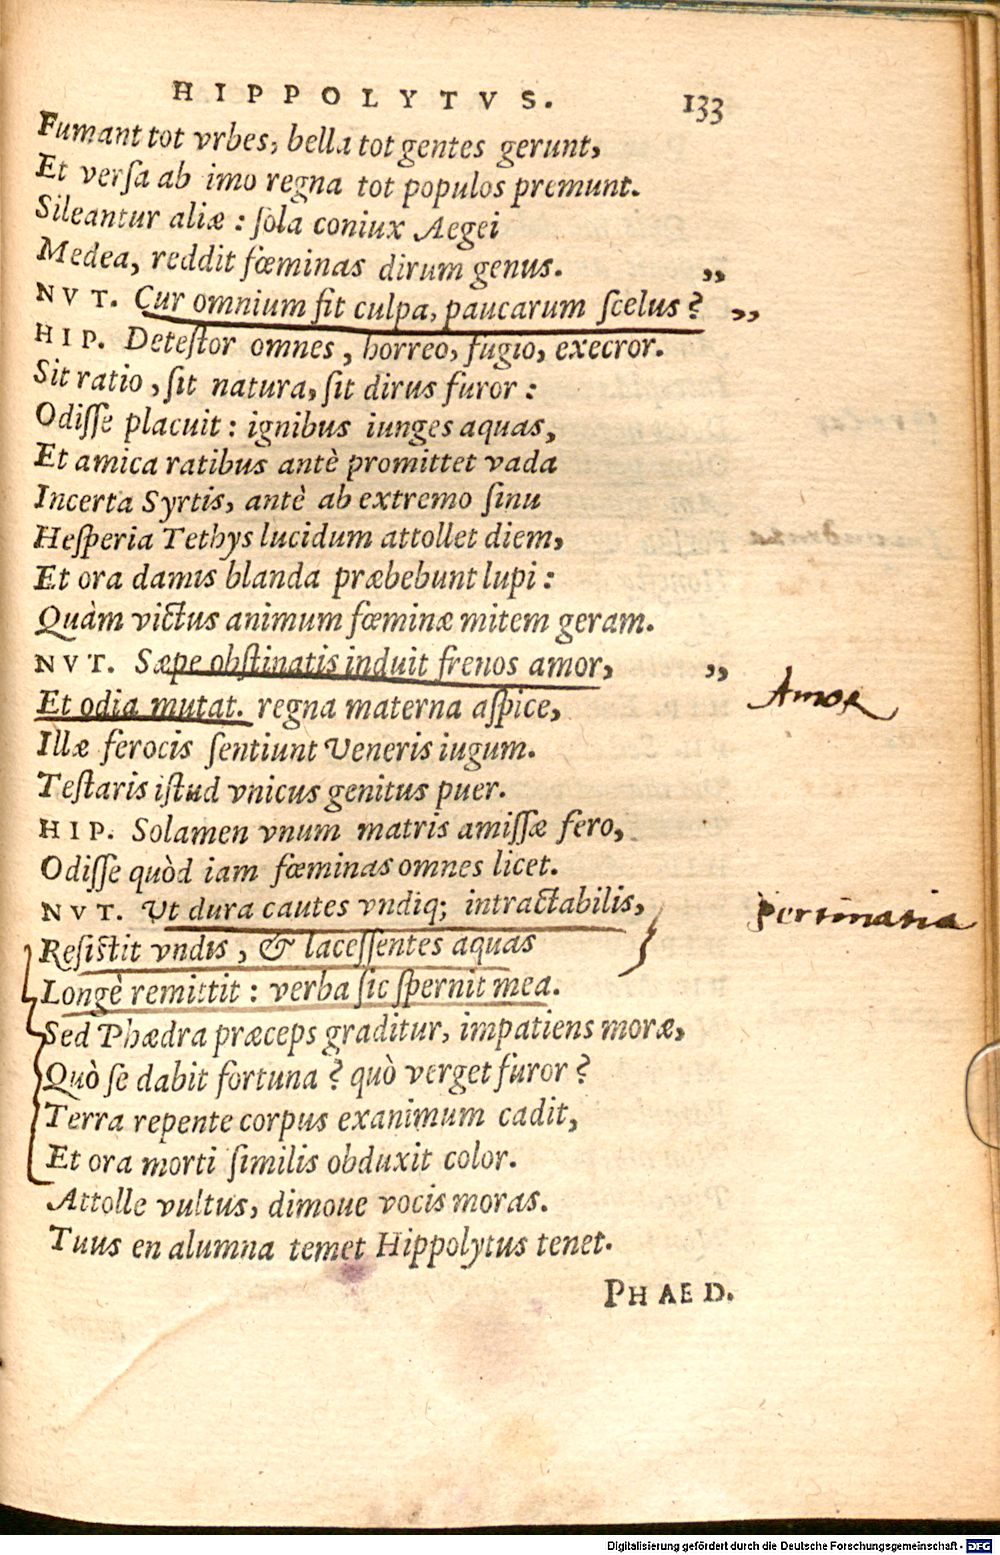 HIPPOLYTVS. 133
Fumant tot vrbes, bella tot gentes gerunt,
Et versa ab imo regna tot populos premunt.
Sileantur aliæ : sola coniux Aegei
Medea, reddit fœminas dirum genus. „
NVT. Cur omnium fit culpa, paucarum scelus? „
HIP. Detestor omnes, horreo, fugio, execror.
Sit ratio, sit natura, sit dirus furor :
Odisse placuit : ignibus iunges aquas,
Et amica ratibus antè promittet vada
Incerta Syrtis, antè ab extremo sinu
Hesperia Tethys lucidum attollet diem,
Et ora damis blanda præbebunt lupi :
Quàm victus animum fœminæ mitem geram.
NVT. Sæpe obstinatis induit frenos amor, „
Et odia mutat. regna materna aspice,
Amor
Illæ ferocis sentiunt Veneris iugum.
Testaris istud vnicus genitus puer.
HIP. Solamen vnum matris amissæ fero,
Odisse quòd iam fœminas omnes licet.
NVT. Ut dura cautes vndiq; intractabilis,
Pertinatia
Resistit vndis, & lacessentes aquas
Longè remittit : verba sic spernit mea.
Sed Phædra præceps graditur, impatiens moræ,
Quò se dabit fortuna? quò verget furor?
Terra repente corpus exanimum cadit,
Et ora morti similis obduxit color.
Attolle vultus, dimoue vocis moras.
Tuus en alumna temet Hippolytus tenet.
PHAED.
Digitalisierung gefördert durch die Deutsche Forschungsgemeinschaft - DFG